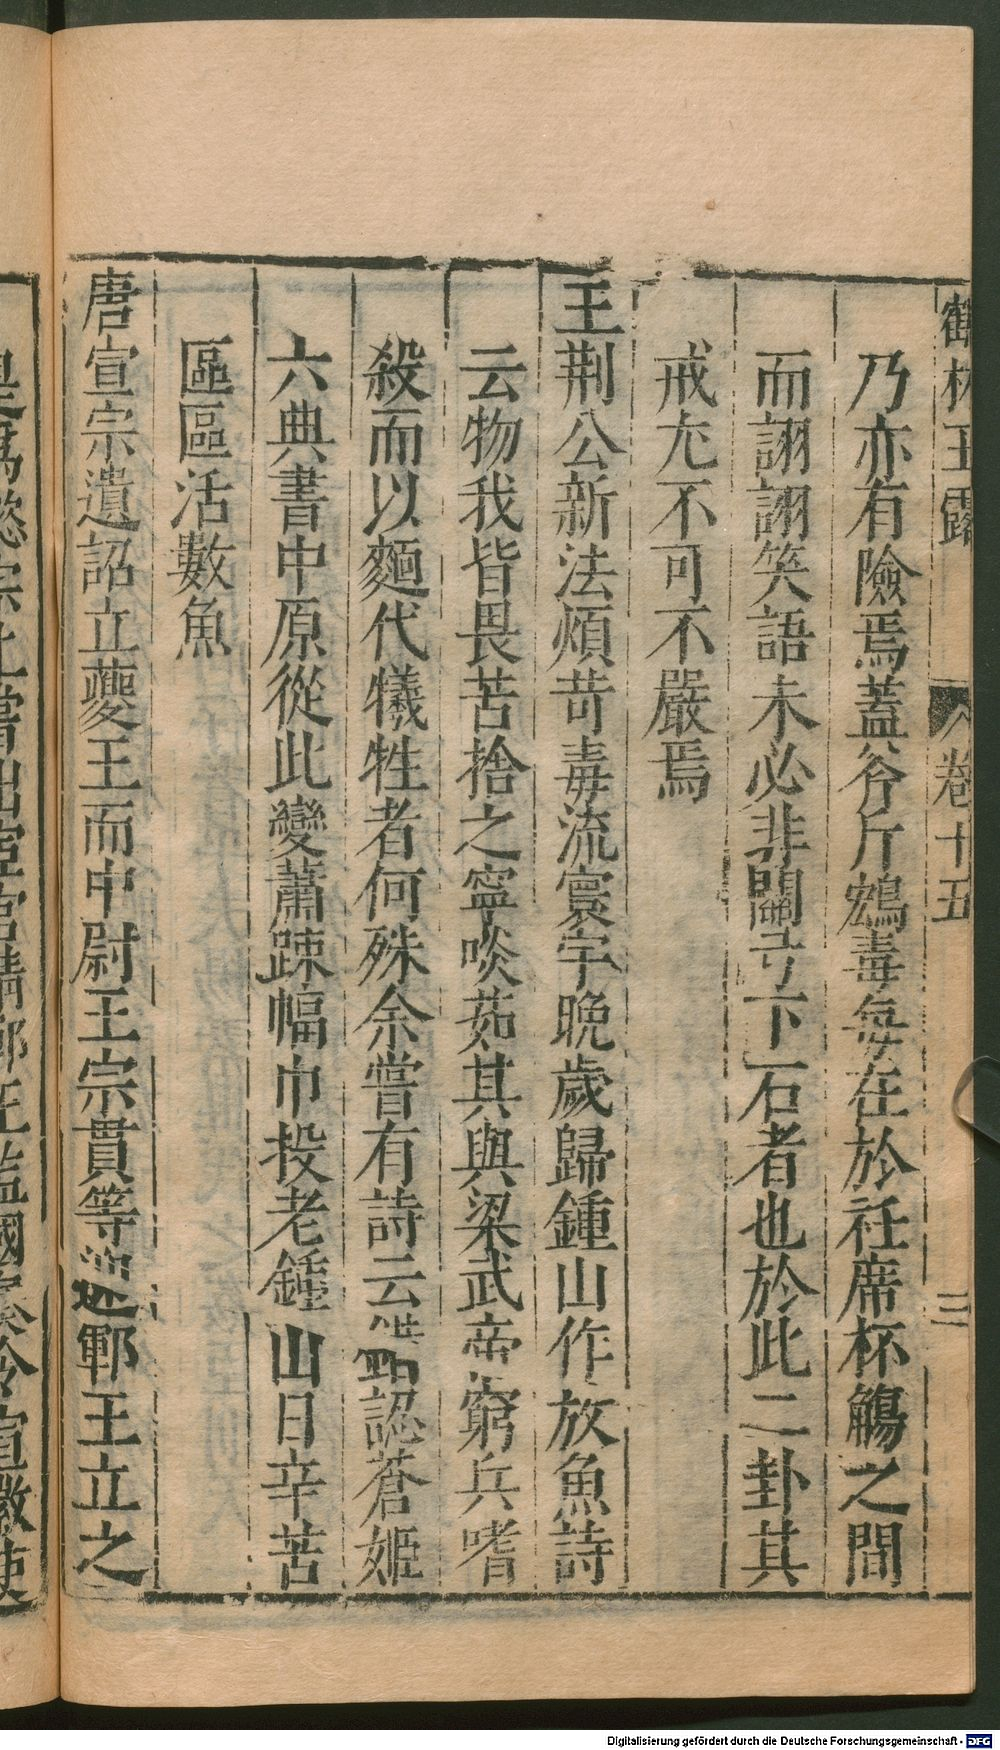 鶴林玉露 卷十五 三
乃亦有險焉蓋斧斤鴆毒每在於衽席杯觴之間
而詡詡笑語未必非關弓下石者也於此二卦其
戒尤不可不嚴焉
王荆公新法煩苛毒流寰宇晚歲歸鍾山作放魚詩
云物我皆畏苦捨之寧啖茹其與梁武帝窮兵嗜
殺而以麵代犧牲者何殊余嘗有詩云錯認蒼姬
六典書中原從此變蕭踈幅巾投老鍾山日辛苦
區區活數魚
唐宣宗遺詔立夔王而中尉王宗貫等迎鄆王立之
是爲懿宗
Digitalisierung gefördert durch die Deutsche Forschungsgemeinschaft - DFG